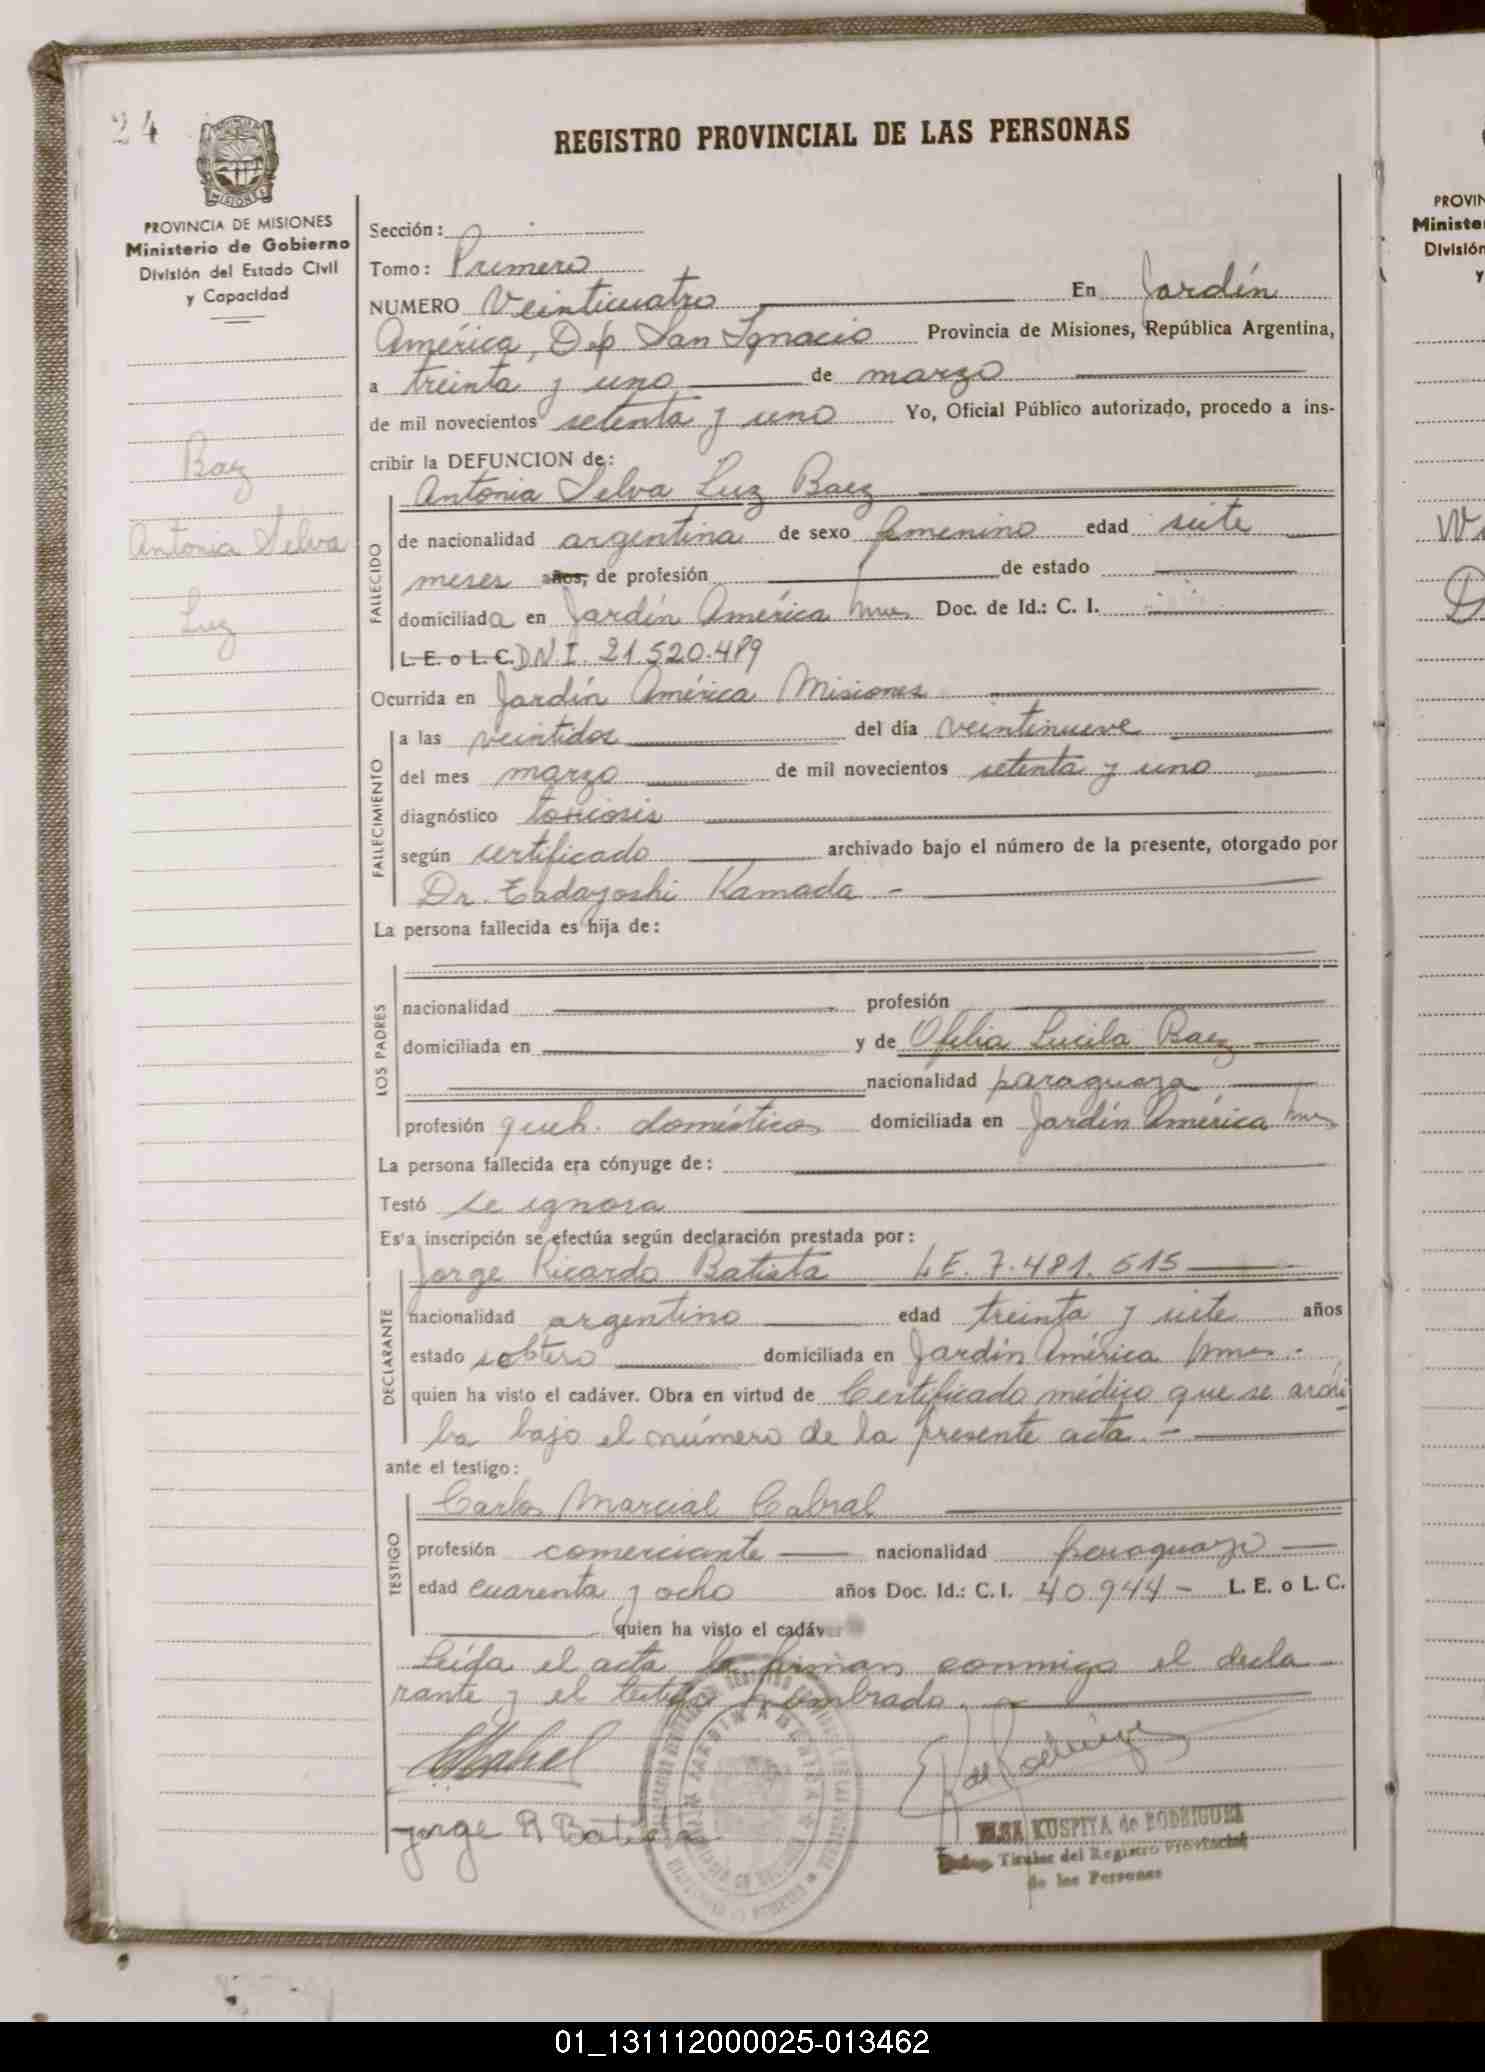 24
PROVINCIA DE MISIONES
Ministerio de Gobierno
División del Estado Civil
y Capacidad
Baez
Antonia Selva
Luz
REGISTRO PROVINCIAL DE LAS PERSONAS
Sección:
Tomo: Primero
NUMERO Veinticuatro En Jardín
América, Dep. San Ignacio Provincia de Misiones, República Argentina,
a treinta y uno de marzo
de mil novecientos setenta y uno Yo, Oficial Público autorizado, procedo a ins-
cribir la DEFUNCION de:
Antonia Selva Luz Baez
FALLECIDO
de nacionalidad argentina de sexo femenino edad siete
meses años, de profesión de estado
domiciliada en Jardín América Mnes Doc. de Id.: C. I.
L. E. o L. C. D.N.I. 21.520.489
Ocurrida en Jardín América Misiones
FALLECIMIENTO
a las veintidos del día veintinueve
del mes marzo de mil novecientos setenta y uno
diagnóstico toxicosis
según certificado archivado bajo el número de la presente, otorgado por
Dr. Tadayoshi Kamada -
La persona fallecida es hija de:
LOS PADRES
nacionalidad profesión
domiciliada en y de Ofelia Lucila Baez
nacionalidad paraguaya
profesión queh. domésticos domiciliada en Jardín América Mnes
La persona fallecida era cónyuge de:
Testó se ignora
Esta inscripción se efectúa según declaración prestada por:
Jorge Ricardo Batista L.E. 7.481.515
DECLARANTE
nacionalidad argentino edad treinta y siete años
estado soltero domiciliada en Jardín América Mnes.
quien ha visto el cadáver. Obra en virtud de Certificado médico que se archi
ba bajo el número de la presente acta. -
ante el testigo:
Carlos Marcial Cabral
TESTIGO
profesión comerciante nacionalidad paraguayo
edad cuarenta y ocho años Doc. Id.: C. I. 40.944 - L. E. o L. C.
quien ha visto el cadáver
Leída el acta la firman conmigo el decla-
rante y el testigo nombrado.
Jorge R Batista
ELSA KUSPITA de RODRIGUEZ
Titular del Registro Provincial
de las Personas
PROVIN
Ministe
División
y
01_131112000025-013462